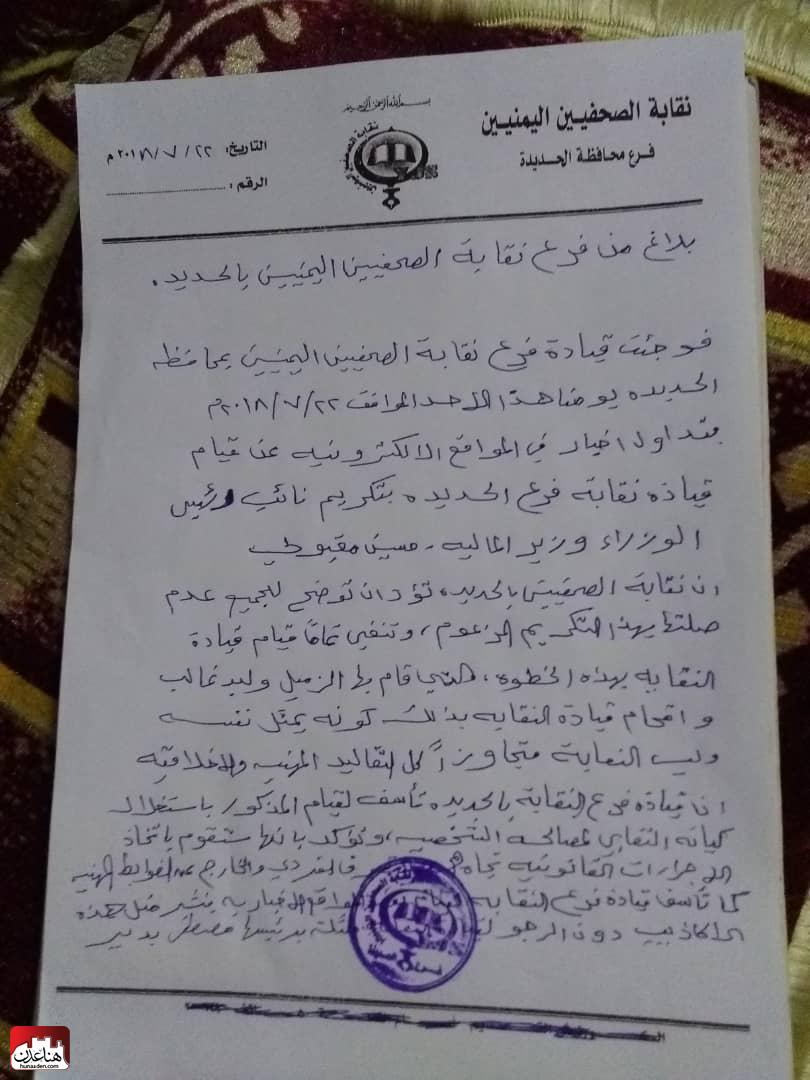 بسم الله الرحمن الرحيم
نقابة الصحفيين اليمنيين
فرع محافظة الحديدة
التاريخ: ٢٢ / ٧ / ٢٠١٨ م
الرقم:
نقابة الصحفيين اليمنيين
بلاغ من فرع نقابة الصحفيين اليمنيين بالحديد.
فوجئت قيادة فرع نقابة الصحفيين اليمنيين بمحافظه
الحديده يومنا هذا الاحد الموافق ٢٢/٧/٢٠١٨م
بتداول اخبار في المواقع الالكترونيه عن قيام
قيادة نقابة فرع الحديده بتكريم نائب رئيس
الوزراء وزير الماليه - حسين مقبولي
ان نقابة الصحفيين بالحديده تؤد ان توضح للجميع عدم
صلتها بهذا التكريم المزعوم، وتنفي تماما قيام قيادة
النقابه بهذه الخطوه، التي قام بها الزميل وليد غالب
واقحام قيادة النقابه بذلك كونه يمثل نفسه
وليس النقابة متجاوزاً كل التقاليد المهنيه والاخلاقيه
ان قيادة فرع النقابة بالحديده تأسف لقيام المذكور باستغلال
كيانه النقابي لمصالحه الشخصيه، وتؤكد بانها ستقوم باتخاذ
الاجراءات القانونيه تجاه الفردي والخارج عن الضوابط المهنيه
كما تأسف قيادة فرع النقابه المواقع الاخباريه بنشر مثل هذه
الاكاذيب دون الرجوع ممثلة برئيسها مصطفى بدير
هنا عدن
hunaaden.com